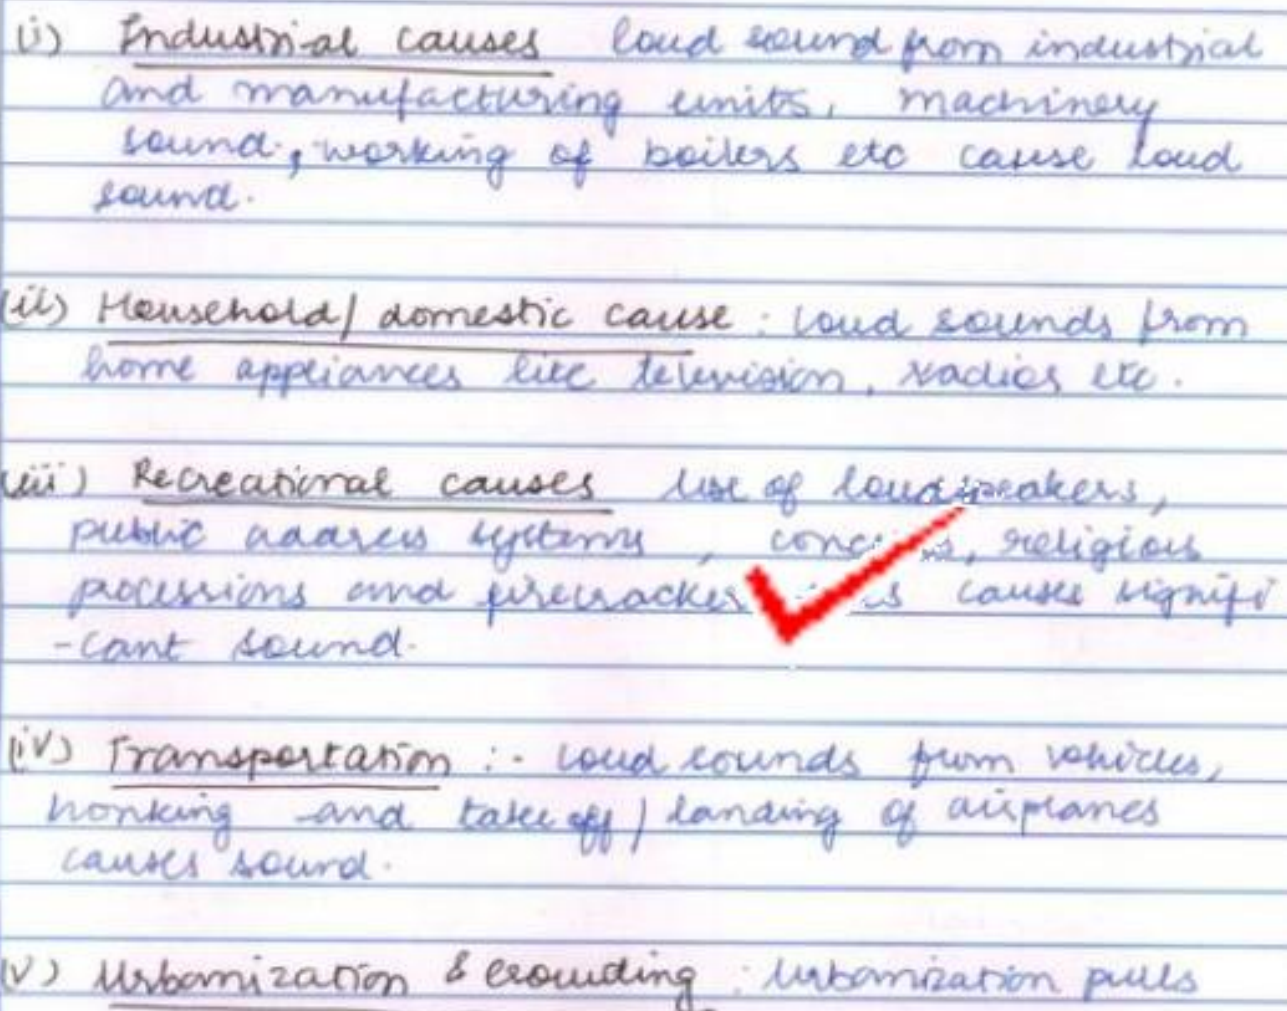 (i) Industrial causes loud sound from industrial
and manufacturing units, machinery
sound, working of boilers etc cause loud
sound.
(ii) Household/domestic cause : loud sounds from
home appliances like television, radios etc.
(iii) Recreational causes use of loudspeakers,
public address systems, religious
processions and causes signifi
-cant sound.
(iv) Transportation :- loud sounds from vehicles,
honking and take off / landing of airplanes
causes sound.
(v) Urbanization & crowding : Urbanization pulls